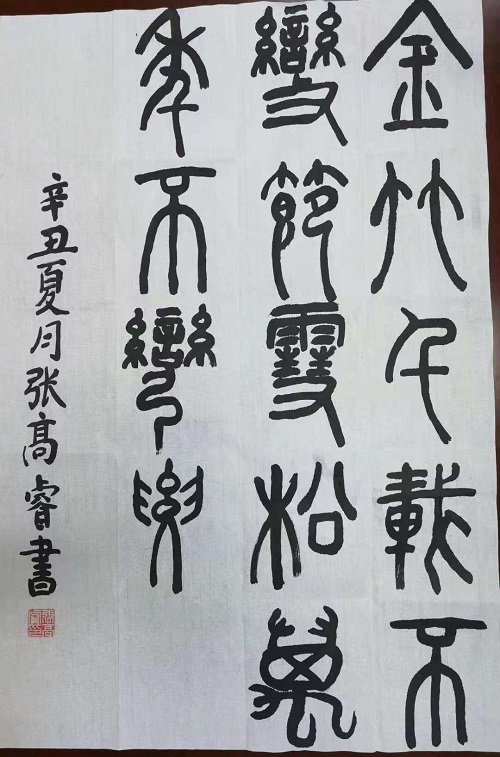 金竹千載不
變節雪松萬
年不彎腰
辛丑夏月张髙睿書